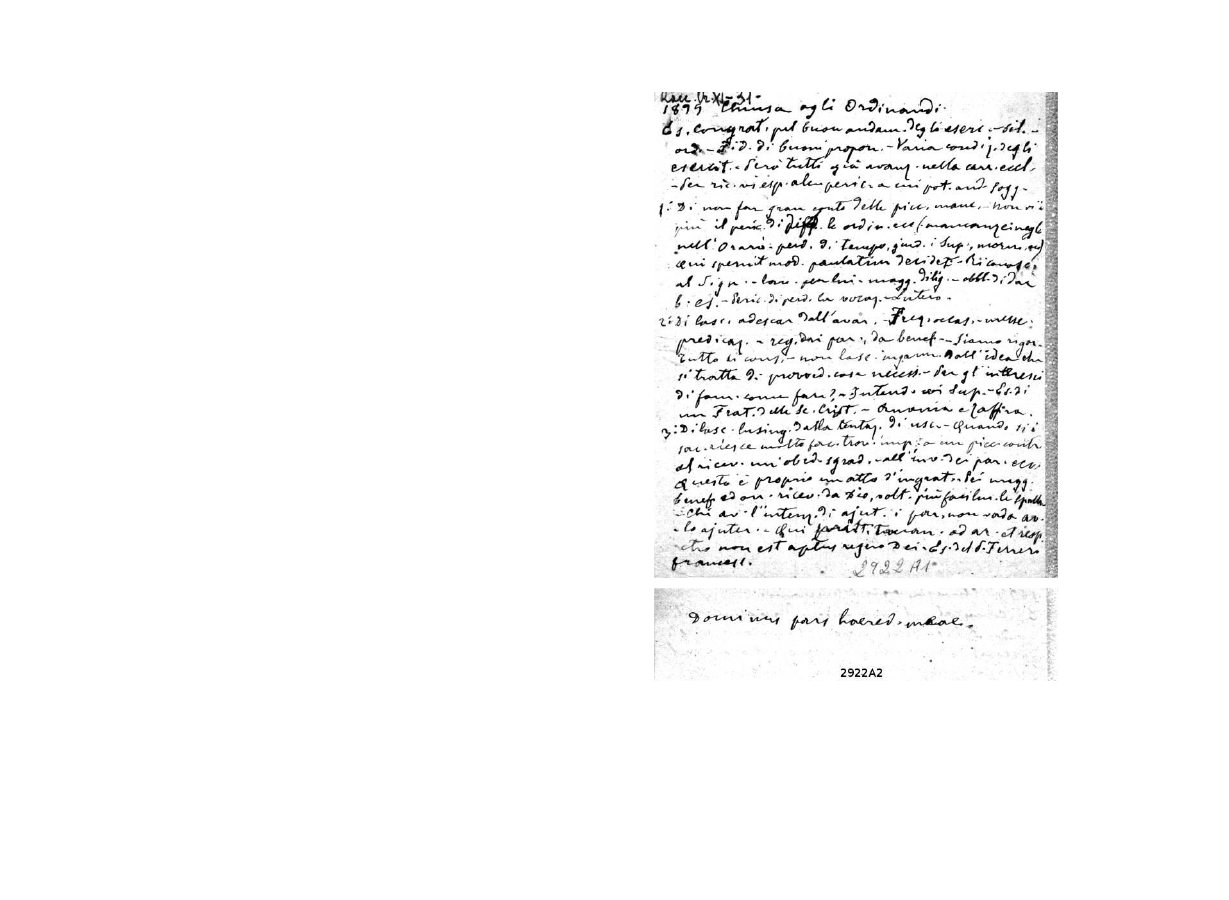 1899 Chiusa agli Ordinandi.
Es. congrat. pel buon andam. degli eserc. - sil. -
ord. - di buoni propon. - Varia condiz. degli
esercit. - Però tutti già avanz. nella carr. eccl. -
1.° Di non far gran conto delle picc. manc. - Non v'è
più il peric. di diff. le ordin. ecc. (mancanze
nell'Orario - perd. di tempo, giud. i Sup., morm.
Qui spernit mod. paulatim decidet - Riconosc.
al Sign. - lav. per lui - magg. dilig. - obbl. di dar
b. es. - Peric. di perd. la vocaz. - Lutero.
2.° Di lasc. adescar dall'avar. - Freq. occas. - messe -
predicaz. - reg. dai par., da benef. - Siamo rigor.
tutto si cons. - non lasc. ingann. dall'idea che
si tratta di provved. cose necess. - Per gl'interessi
di fam. come fare? - Intend. coi Sup. - Es. di
un Frat. delle Sc. Crist. - Anania e Zaffira.
3.° Di lasc. lusing. dalla tentaz. di usc. - Quando si è
sac. riesce molto fac. trov. imp. a un picc. contr.
al ricev. un'obbed. sgrad. - all'inv. dei par. ecc.
Questo è proprio un atto d'ingrat. - Più magg.
benef. ed on. ricev. da Dio, volt. più facilm. le spalle
- Chi av. l'intenz. di ajut. i par. non vada av.
- lo ajuter. - Qui ad ar. et resp.
retro non est aptus regno Dei - Es. del d. Ferrero
Francesc.
2922 A1
Dominus pars haered. meae.
2922A2